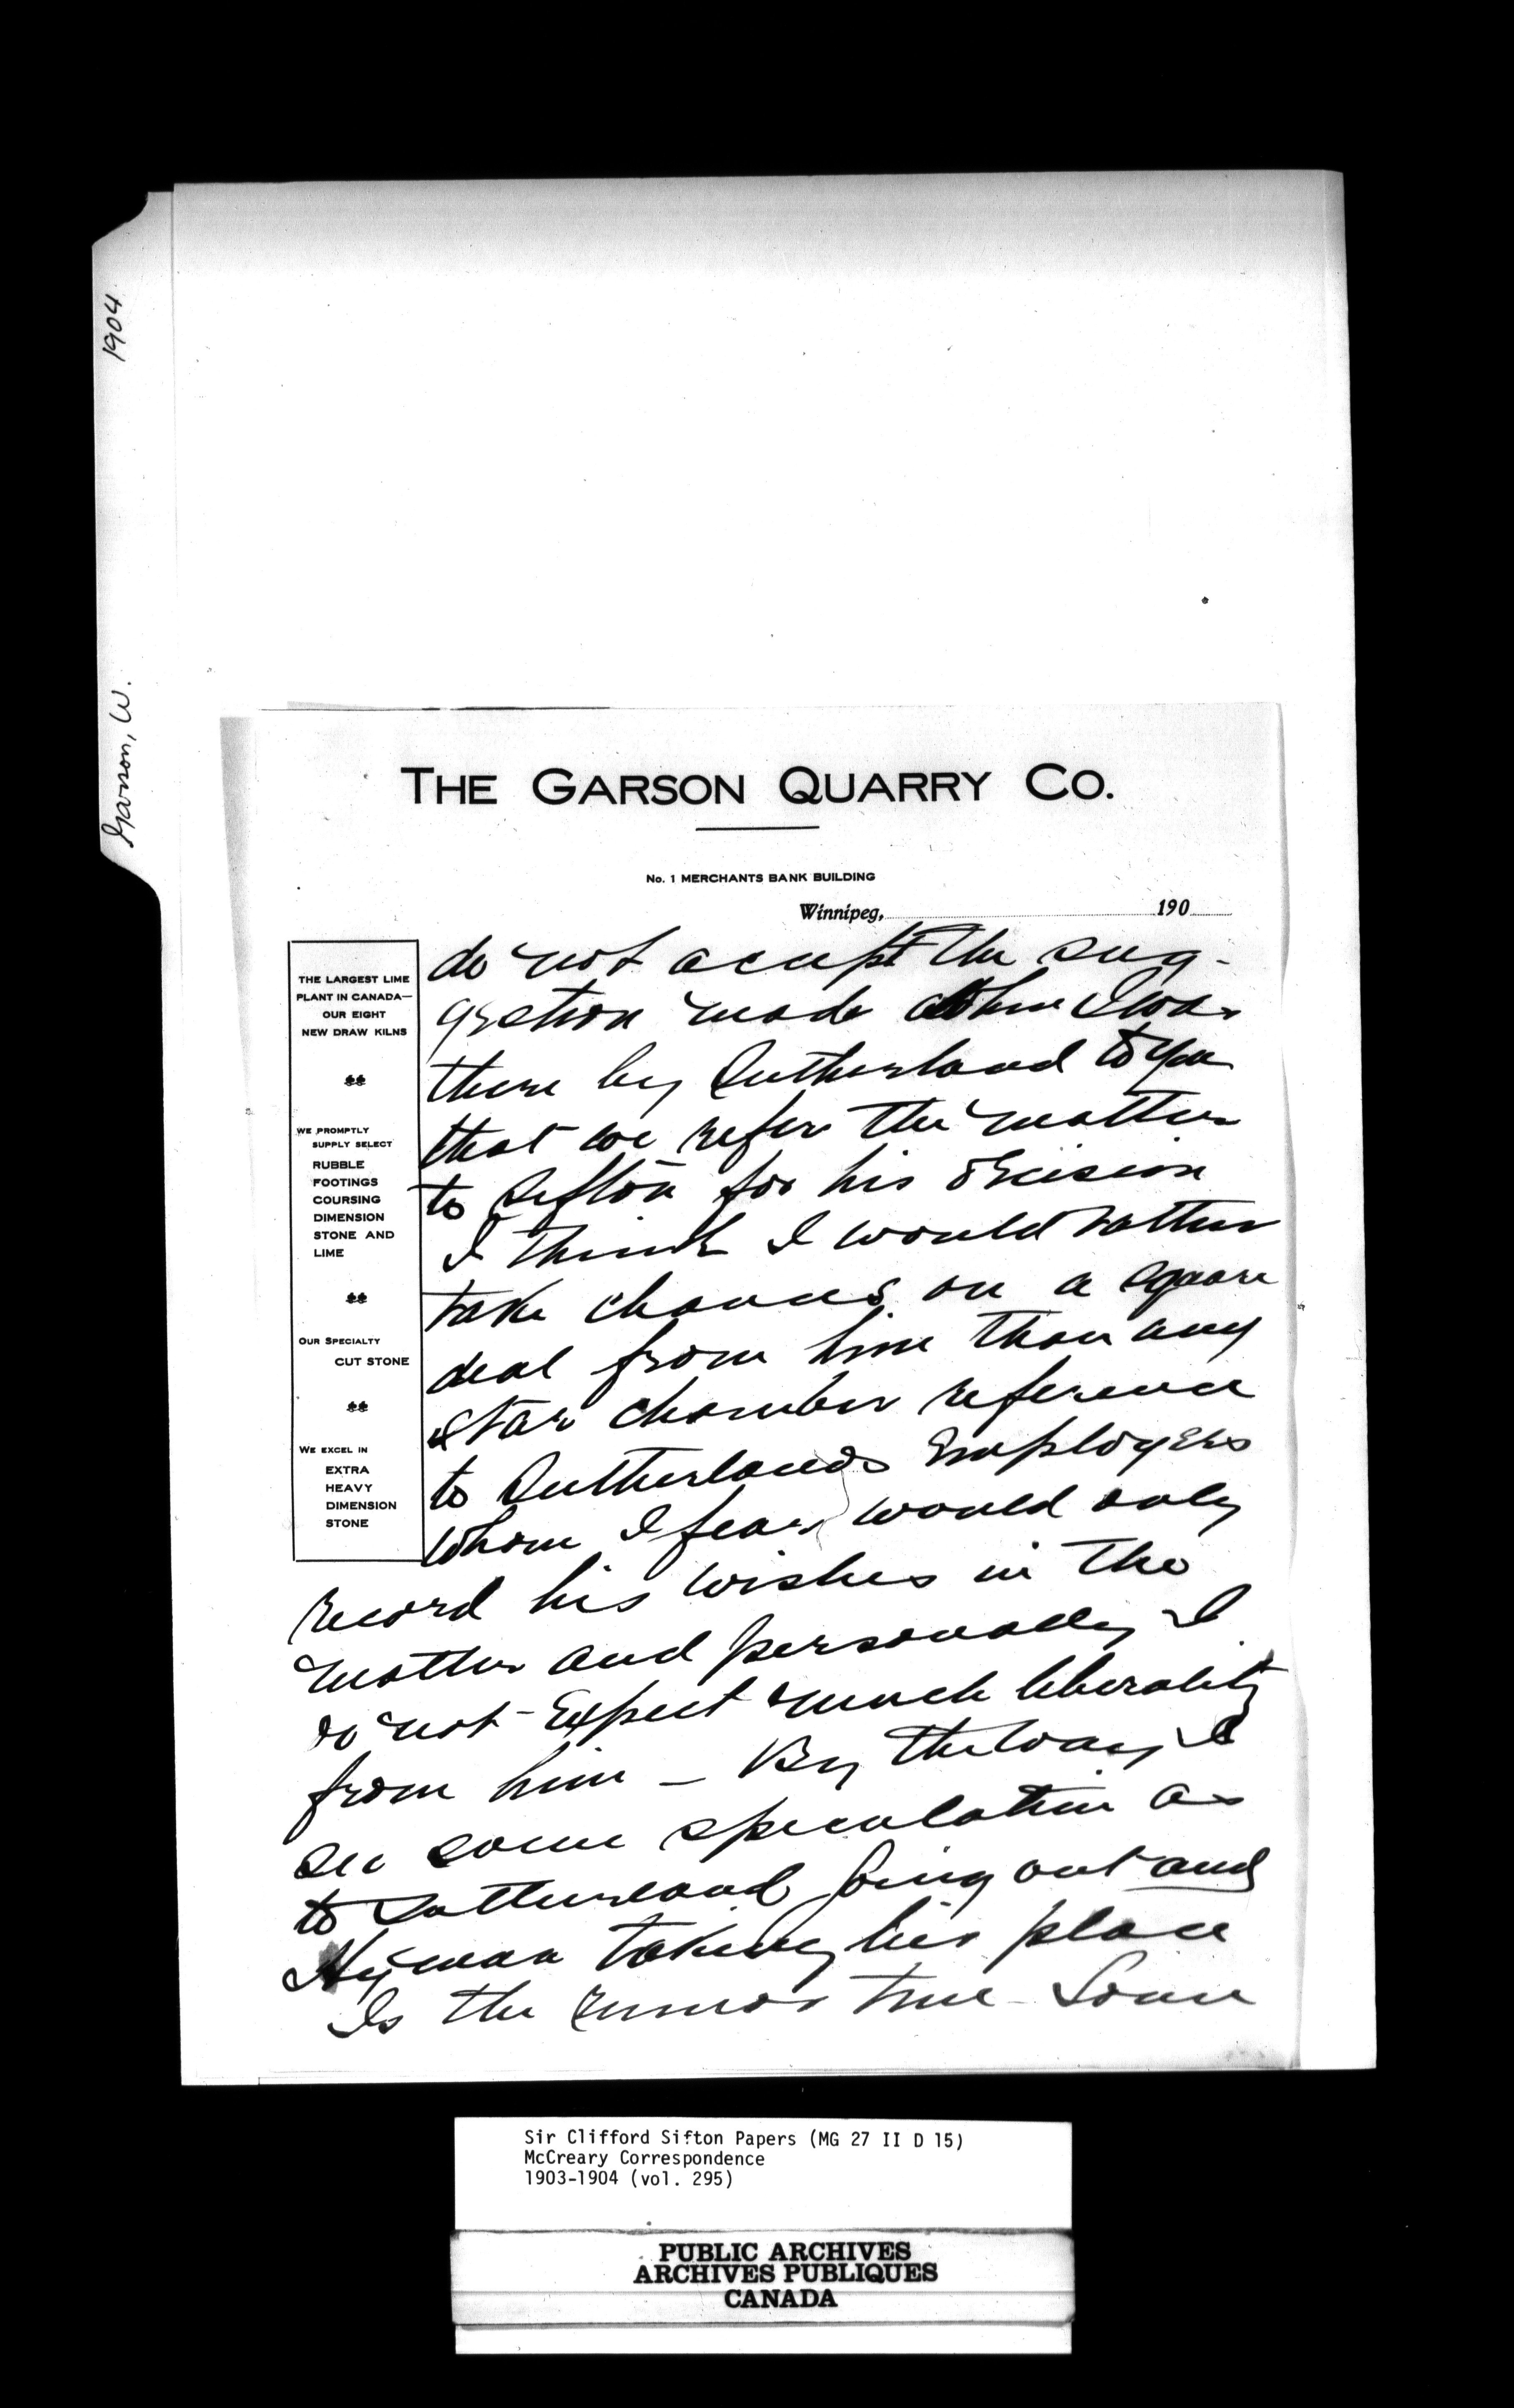 1904
Garson, W.
THE GARSON QUARRY CO.
No. 1 MERCHANTS BANK BUILDING
Winnipeg, 190
THE LARGEST LIME
PLANT IN CANADA—
OUR EIGHT
NEW DRAW KILNS
WE PROMPTLY
SUPPLY SELECT
RUBBLE
FOOTINGS
COURSING
DIMENSION
STONE AND
LIME
OUR SPECIALTY
CUT STONE
WE EXCEL IN
EXTRA
HEAVY
DIMENSION
STONE
do not accept the sug-
gestion made when I was
there by Sutherland to you
that we refer the matter
to Sifton for his decision
I think I would rather
take chances on a square
deal from him than any
star chamber reference
to Sutherlands Employees
whom I fear would only
record his wishes in the
matter and personally I
do not Expect much liberality
from him — By the way I
see some speculation as
to Sutherland going out and
Hyman taking his place
Is the rumor true Some
Sir Clifford Sifton Papers (MG 27 II D 15)
McCreary Correspondence
1903-1904 (vol. 295)
PUBLIC ARCHIVES
ARCHIVES PUBLIQUES
CANADA